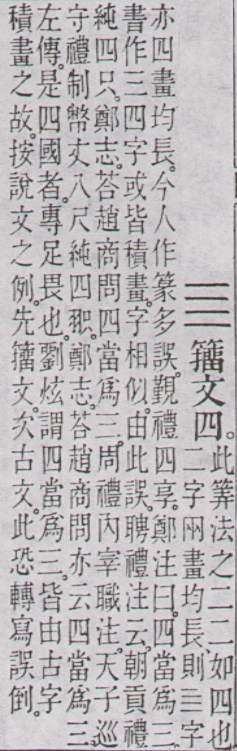 亖籒文四。
此筭法之二二如四也
二字网畫均長、則亖字
亦四畫均長。今人作篆多誤。覲禮四享。鄭注曰。四當爲三
書作三四字或皆積畫。字相似。由此誤。聘禮注云。朝貢禮
純四只。鄭志荅趙商問四當爲三。周禮內宰職注。天子巡
守禮制幣丈八尺純四。鄭志荅趙商問亦云四當爲三。
左傳。是四國者。專足畏也。劉炫謂四當爲三。皆由古字
積畫之故。按說文之例。先籒文。次古文。此恐轉寫誤倒。